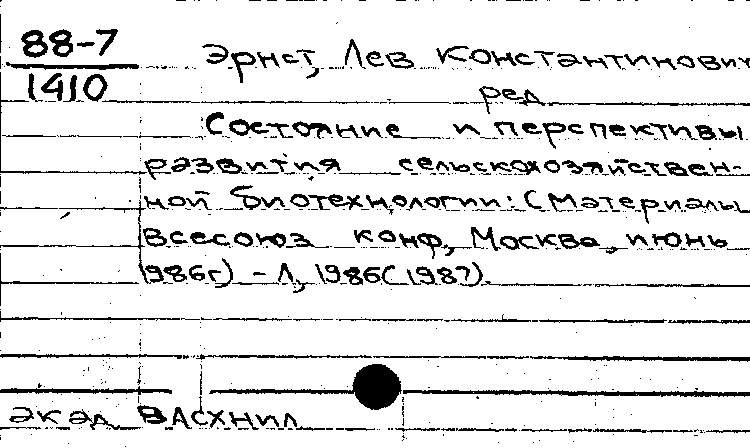 88-7
1410
Эрнст, Лев Константинович
ред.
Состояние и перспективы
развития сельскохозяйствен-
ной биотехнологии: (Материалы
Всесоюз конф., Москва, июнь
1986г) - Л, 1986(1987).
акад. ВАСХНИЛ